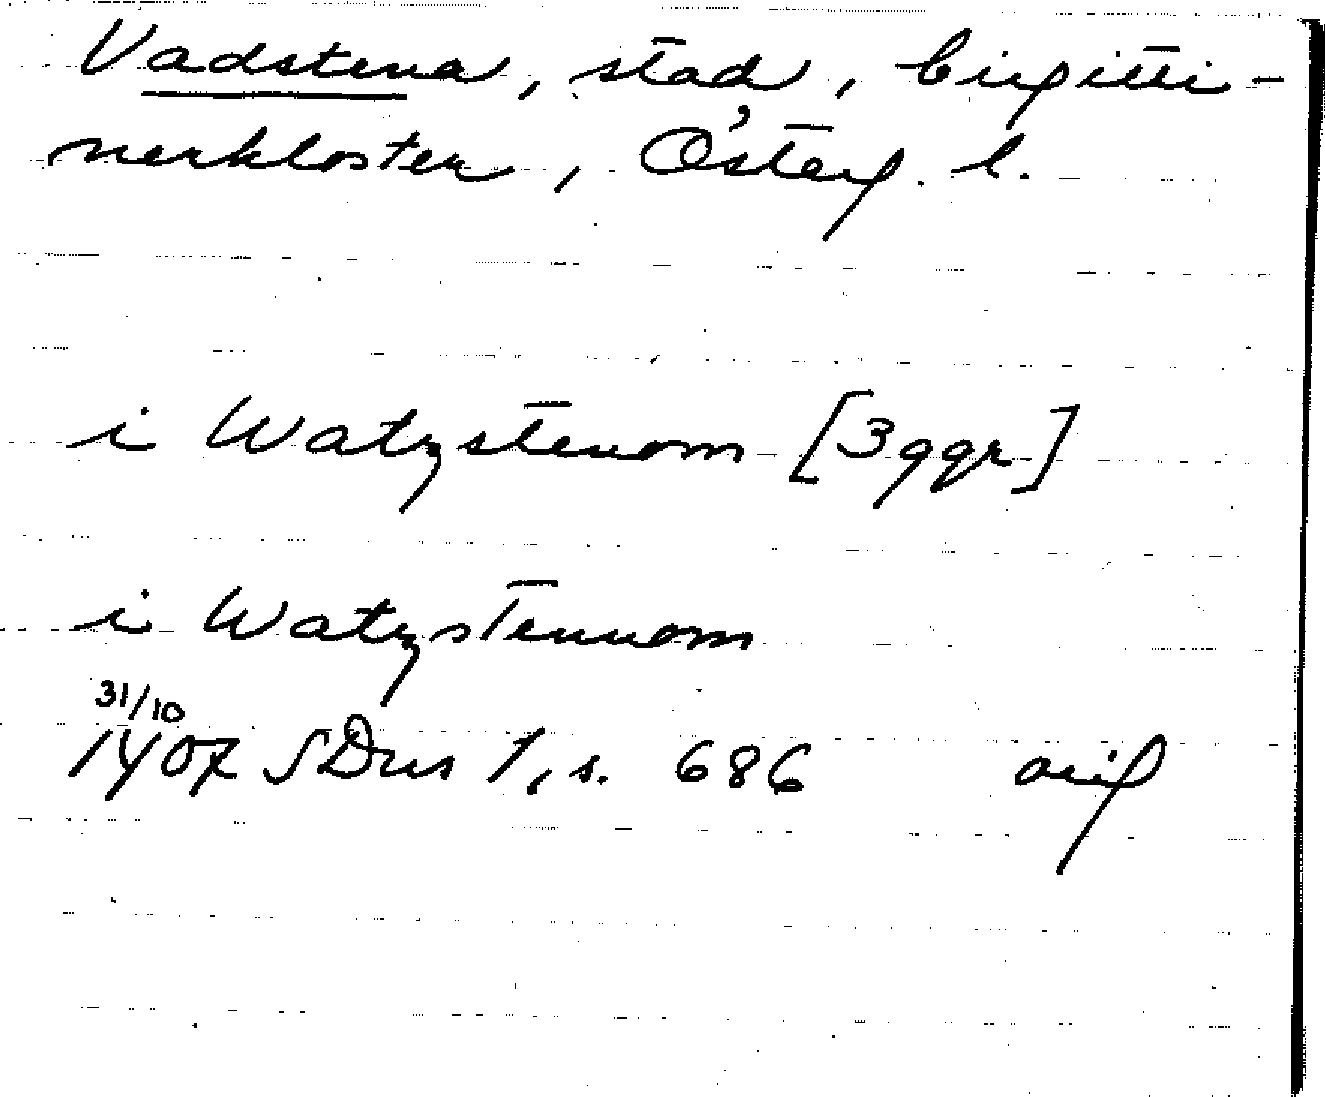 Vadstena, stad, birgitti-
nerkloster, Österg. l.
i Watzstenom [3 ggr]
i Watzstennom
31/10
1407 SDns 1, s. 686 orig